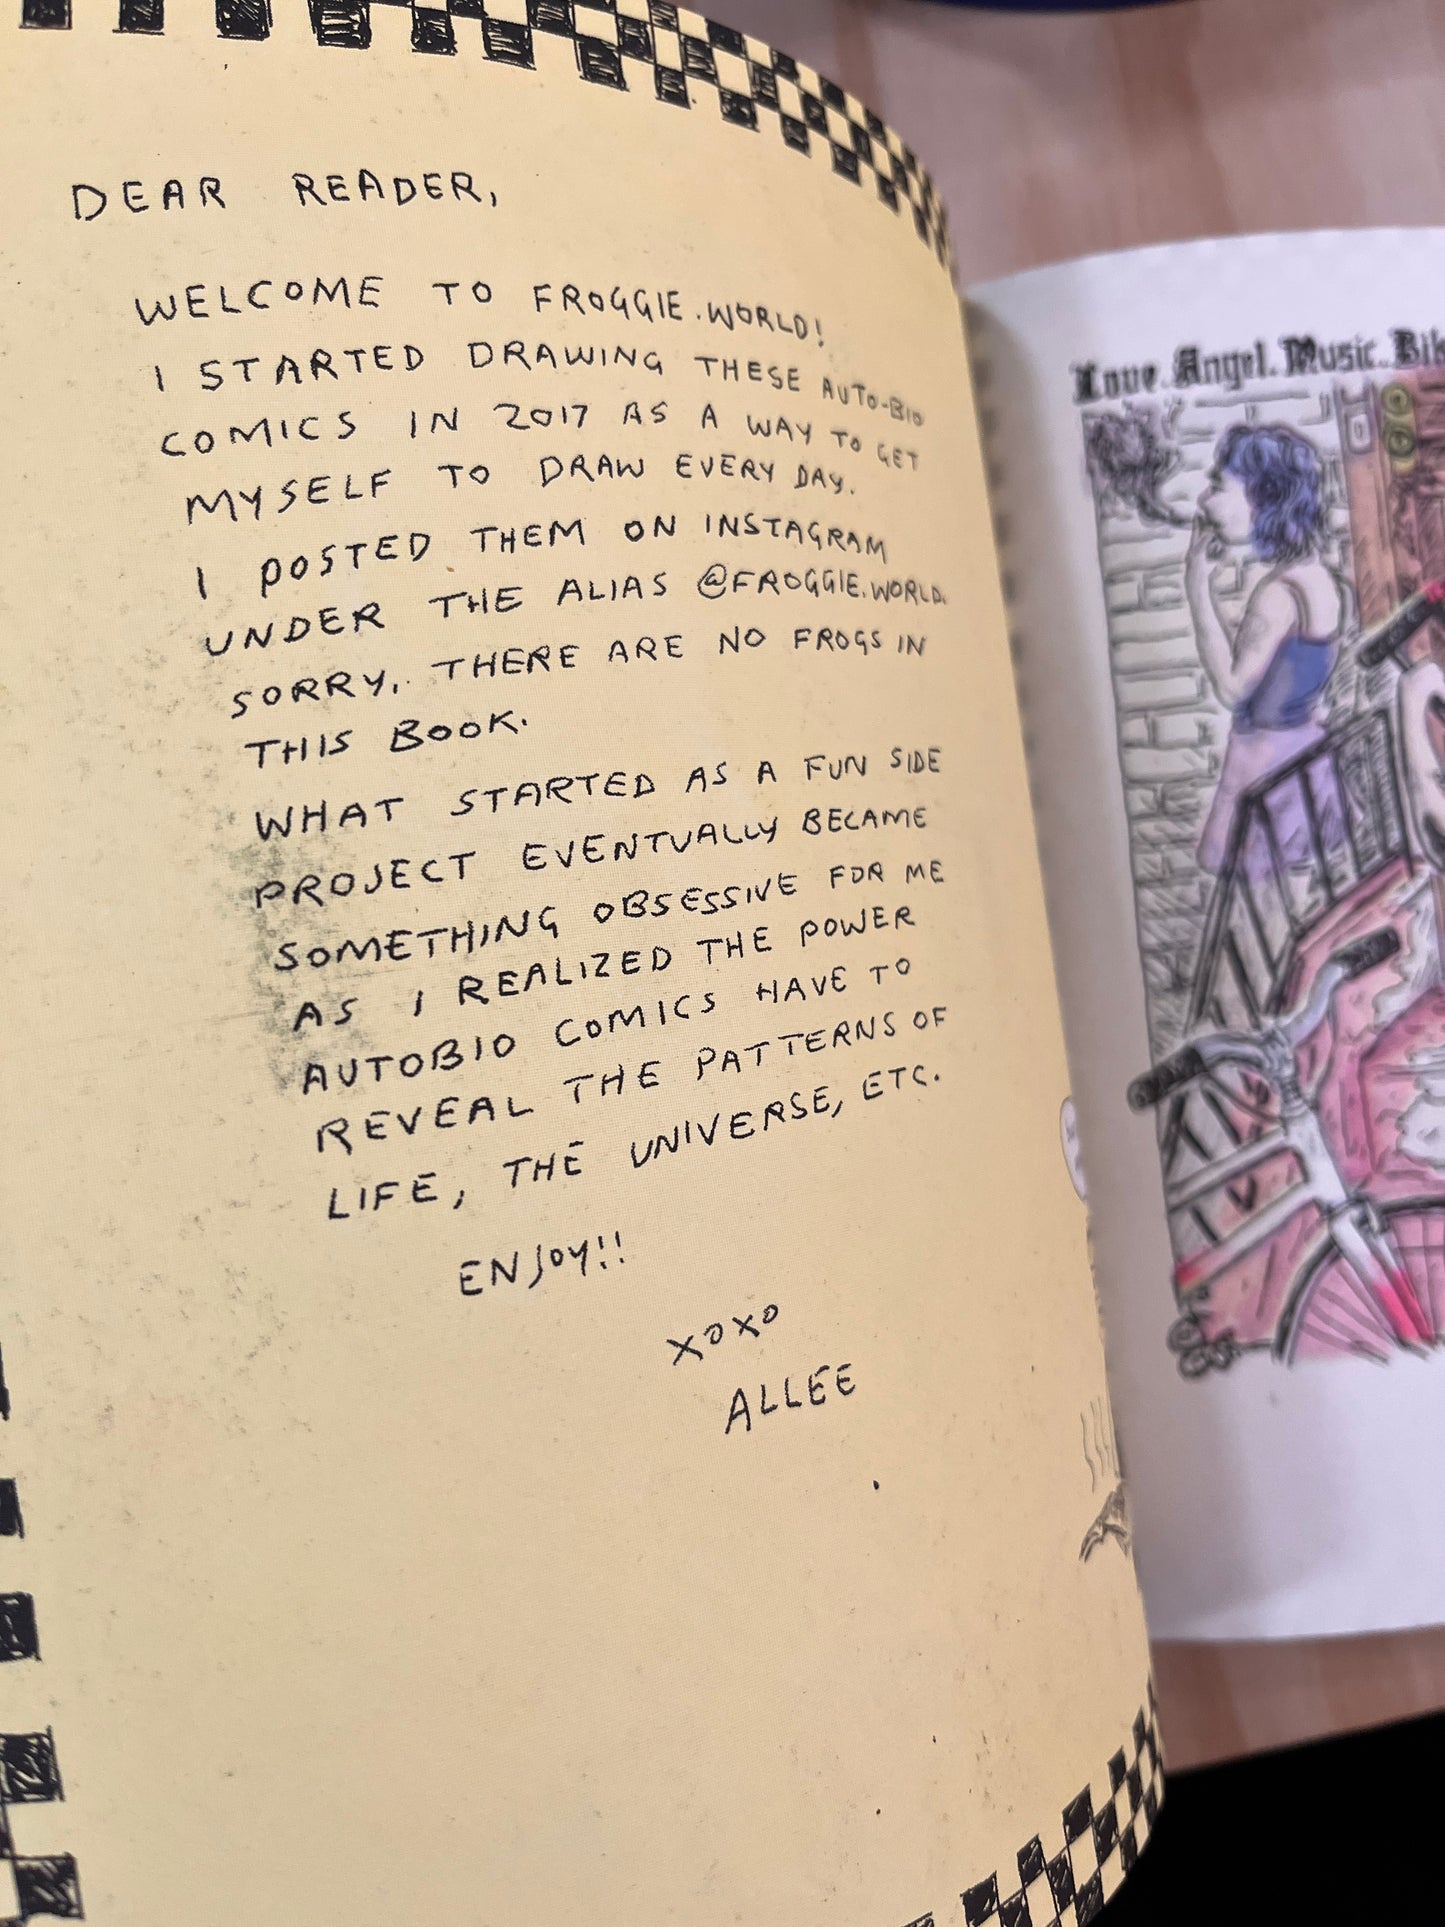 DEAR READER,
WELCOME TO FROGGIE.WORLD!
I STARTED DRAWING THESE AUTO-BIO
COMICS IN 2017 AS A WAY TO GET
MYSELF TO DRAW EVERY DAY.
I POSTED THEM ON INSTAGRAM
UNDER THE ALIAS @FROGGIE.WORLD.
SORRY, THERE ARE NO FROGS IN
THIS BOOK.
WHAT STARTED AS A FUN SIDE
PROJECT EVENTUALLY BECAME
SOMETHING OBSESSIVE FOR ME
AS I REALIZED THE POWER
AUTOBIO COMICS HAVE TO
REVEAL THE PATTERNS OF
LIFE, THE UNIVERSE, ETC.
ENJOY!!
XOXO
ALLEE
Love. Angel. Music. Bik